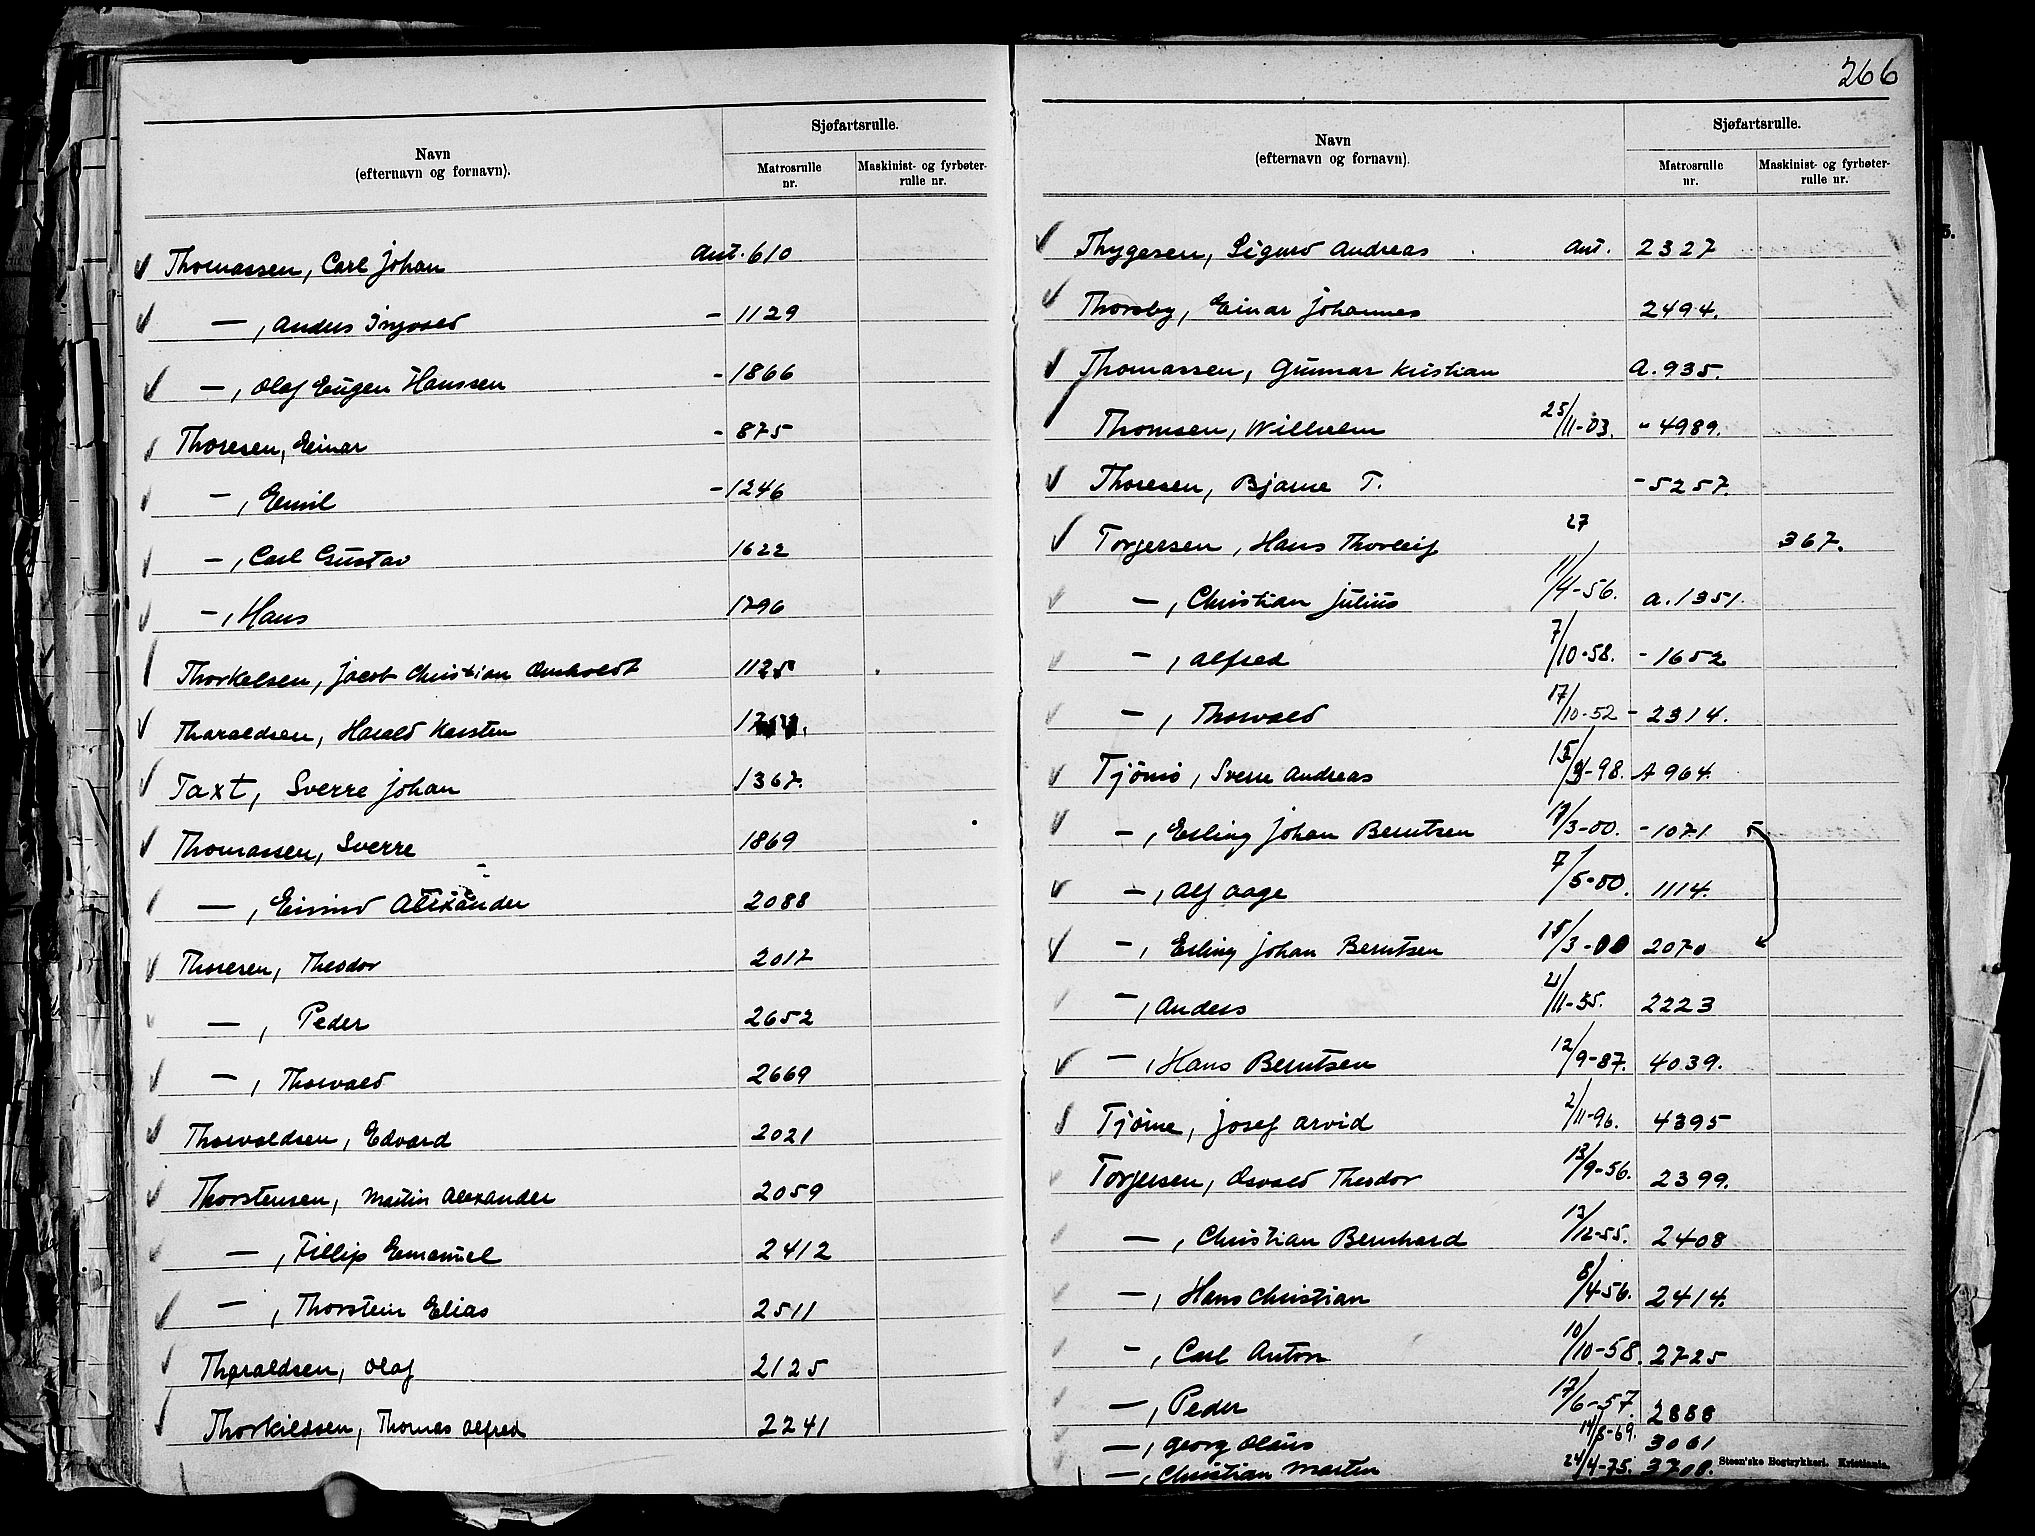 Navn
(efternavn og fornavn).
Sjøfartsrulle.
Matrosrulle nr.
Maskinist- og fyrbøter-rulle nr.
Thomassen, Carl Johan Ant. 610
—, Anders Ingvald - 1129
—, Olaf Eugen Hanssen - 1866
Thoresen, Einar - 875
—, Emil - 1246
—, Carl Gustav 1622
—, Hans 1796
Thorkelsen, Jacob Christian Omholdt 1125
Tharaldsen, Harald Karsten
Taxt, Sverre Johan 1367.
Thomassen, Sverre 1869
—, Eivind Alexander 2088
Thoresen, Theodor 2017
—, Peder 2652
—, Thorvald 2669
Thorvaldsen, Edvard 2021
Thorstensen, Martin Alexander 2059
—, Fillip Emanuel 2412
—, Thorstein Elias 2511
Tharaldsen, Olaf 2125
Thorkildsen, Thomas Alfred 2241
266
Navn
(efternavn og fornavn).
Sjøfartsrulle.
Matrosrulle nr.
Maskinist- og fyrbøter-rulle nr.
Thygesen, Sigurd Andreas Ant. 2327
Thorsby, Einar Johannes 2494.
Thomassen, Gunnar Kristian A. 935.
Thomsen, Wilhelm 25/11-03. " 4989.
Thoresen, Bjarne T. - 5257.
Torgersen, Hans Thorleif 27 367.
—, Christian Julius 11/4-56. A. 1351.
—, Alfred 7/10-58. - 1652
—, Thorvald 17/10-52 - 2314.
Tjömö, Sverre Andreas A 964.
—, Erling Johan Berntsen /3-00. - 1071
—, Alf Aage 7/5-00. 1114.
—, Erling Johan Berntsen /3-00 2070
—, Anders 2223
—, Hans Berntsen 12/9-87. 4039.
Tjöme, Josef Arvid 2/11-96. 4395
Torgersen, Osvald Theodor 13/9-56. 2399.
—, Christian Bernhard 2408
—, Hans Christian 8/4-56. 2414.
—, Carl Anton 10/10-58. 2725
—, Peder 17/6-57. 2888
—, Georg Olaus 14/8-69. 3061
—, Christian Martin 24/4-75. 3708.
Steen'ske Bogtrykkeri. Kristiania.